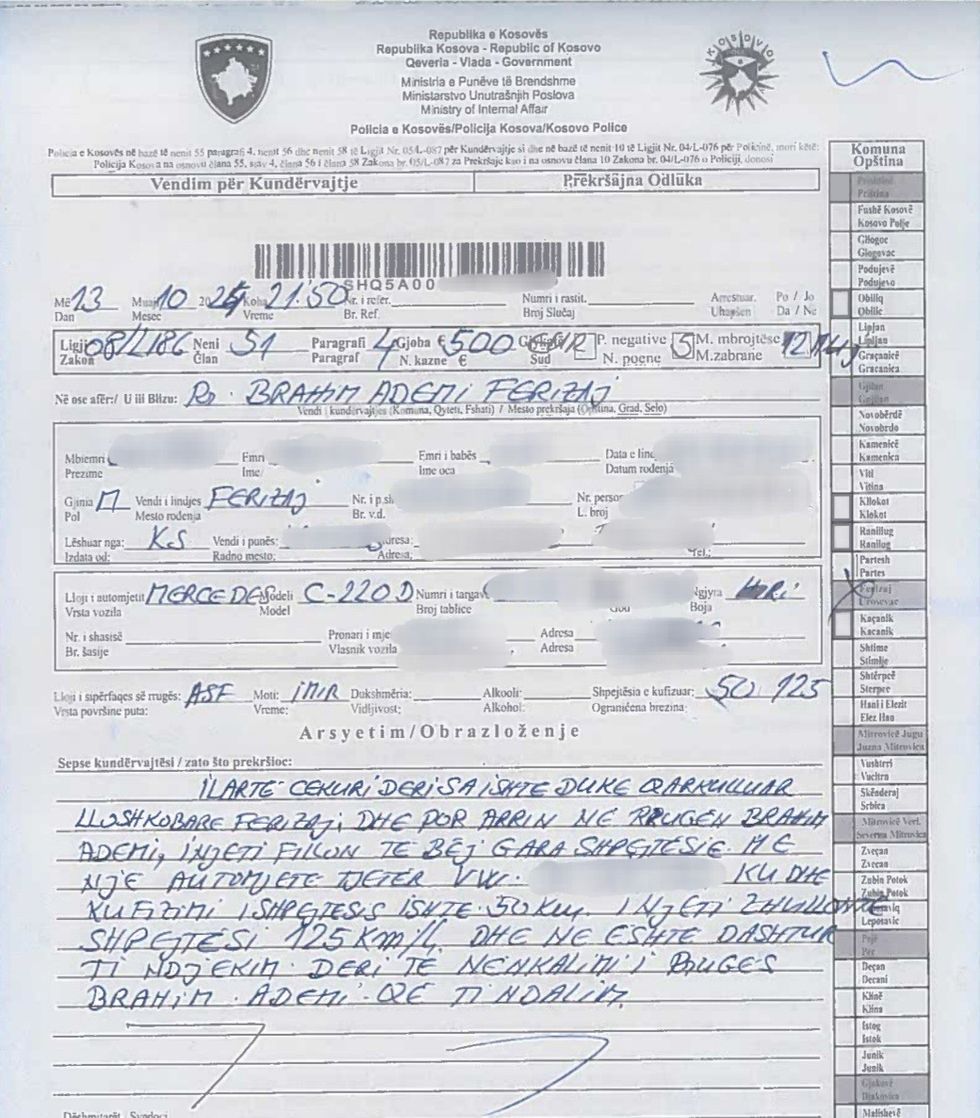 Republika e Kosovës
Republika Kosova - Republic of Kosovo
Qeveria - Vlada - Government
Ministria e Punëve të Brendshme
Ministarstvo Unutrašnjih Poslova
Ministry of Internal Affair
Policia e Kosovës/Policija Kosova/Kosovo Police
KOSOVO
Policia e Kosovës në bazë të nenit 55 paragrafi 4, nenit 56 dhe nenit 58 të Ligjit Nr. 05/L-087 për Kundërvajtje si dhe në bazë të nenit 10 të Ligjit Nr. 04/L-076 për Policinë, mori këtë:
Policija Kosova na osnovu člana 55, stav 4, člana 56 i člana 58 Zakona br. 05/L-087 za Prekršaje kao i na osnovu člana 10 Zakona br. 04/L-076 o Policiji, donosi
Vendim për Kundërvajtje Prekršajna Odluka
SHQ5A00
Më 13 Muaj 10 2025 Koha 21:50 Nr. i refer. Numri i rastit. Arrestuar. Po / Jo
Dan Mesec Vreme Br. Ref. Broj Slučaj Uhapšen Da / Ne
Ligji 08/L186 Neni 51 Paragrafi 4 Gjoba € 500 P. negative 5 M. mbrojtëse 12 MUJ
Zakon Član Paragraf N. kazne € Sud N. poene M.zabrane
Në ose afër:/ U ili Blizu: Rr. BRAHIM ADEMI FERIZAJ
Vendi i kundërvajtjes (Komuna, Qyteti, Fshati) / Mesto prekršaja (Opština, Grad, Selo)
Mbiemri Emri Emri i babës Data e lind
Prezime Ime Ime oca Datum rođenja
Gjinia M Vendi i lindjes FERIZAJ Nr. i p.sh Nr. person
Pol Mesto rođenja Br. v.d. L. broj
Lëshuar nga: KS Vendi i punës: Adresa:
Izdata od: Radno mesto: Adresa: Tel.:
Lloji i automjetit MERCEDES Modeli C-220D Numri i targave Ngjyra HIRI
Vrsta vozila Model Broj tablice God Boja
Nr. i shasisë Pronari i mje Adresa
Br. šasije Vlasnik vozila Adresa
Lloji i sipërfaqes së rrugës: ASF Moti: IMIR Dukshmëria: Alkooli: Shpejtësia e kufizuar: 50 125
Vrsta površine puta: Vreme: Vidljivost: Alkohol: Ograničena brezina:
Arsyetim/Obrazloženje
Sepse kundërvajtësi / zato što prekršioc:
I LARTË CEKURI DERISA ISHTE DUKE QARKULLUAR
LLOSHKOBARE FERIZAJ, DHE POR ARRIN NË RRUGEN BRAHIM
ADEMI, INJETI FILLON TË BËJ GARA SHPEJTËSIE ME
NJË AUTOMJETE TJETER VW. KU DHE
KUFIZIMI I SHPEJTESIS ISHTE 50 KM. INJETI ZHVILLONTE
SHPEJTËSI 125 KM/h. DHE NE ËSHTË DASHTUR
TI NDJEKIM DERI TË NENKALIMI I RRUGES
BRAHIM ADEMI QË TI NDALIM.
Dëshmitarët Svedoci
Komuna
Opština
Prishtinë
Priština
Fushë Kosovë
Kosovo Polje
Gllogoc
Glogovac
Podujevë
Podujevo
Obiliq
Obilic
Lipjan
Lipljan
Graçanicë
Gracanica
Gjilan
Gnjilan
Novobërdë
Novobrdo
Kamenicë
Kamenica
Viti
Vitina
Kllokot
Klokot
Ranillug
Ranilug
Partesh
Partes
Ferizaj
Urosevac
Kaçanik
Kacanik
Shtime
Stimlje
Shtërpcë
Sterpce
Hani i Elezit
Elez Han
Mitrovicë Jugu
Juzna Mitrovica
Vushtrri
Vucitrn
Skënderaj
Srbica
Mitrovicë Veri.
Severna Mitrovica
Zveçan
Zvecan
Zubin Potok
Zubin Potok
Leposaviq
Leposavic
Pejë
Pec
Deçan
Decani
Klinë
Klina
Istog
Istok
Junik
Junik
Gjakovë
Djakovica
Malishevë